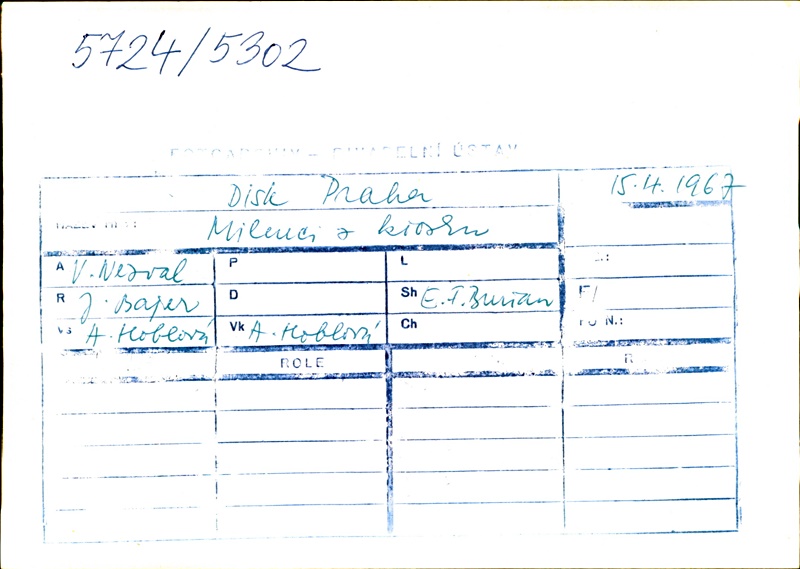 5724/5302
DIVADELNÍ ÚSTAV
Disk Praha 15.4.1967
Milenci z kiosku
A V. Nezval P L
R J. Bajer D Sh E. F. Burian F/
Vs A. Hoblová Vk A. Hoblová Ch N.:
ROLE R